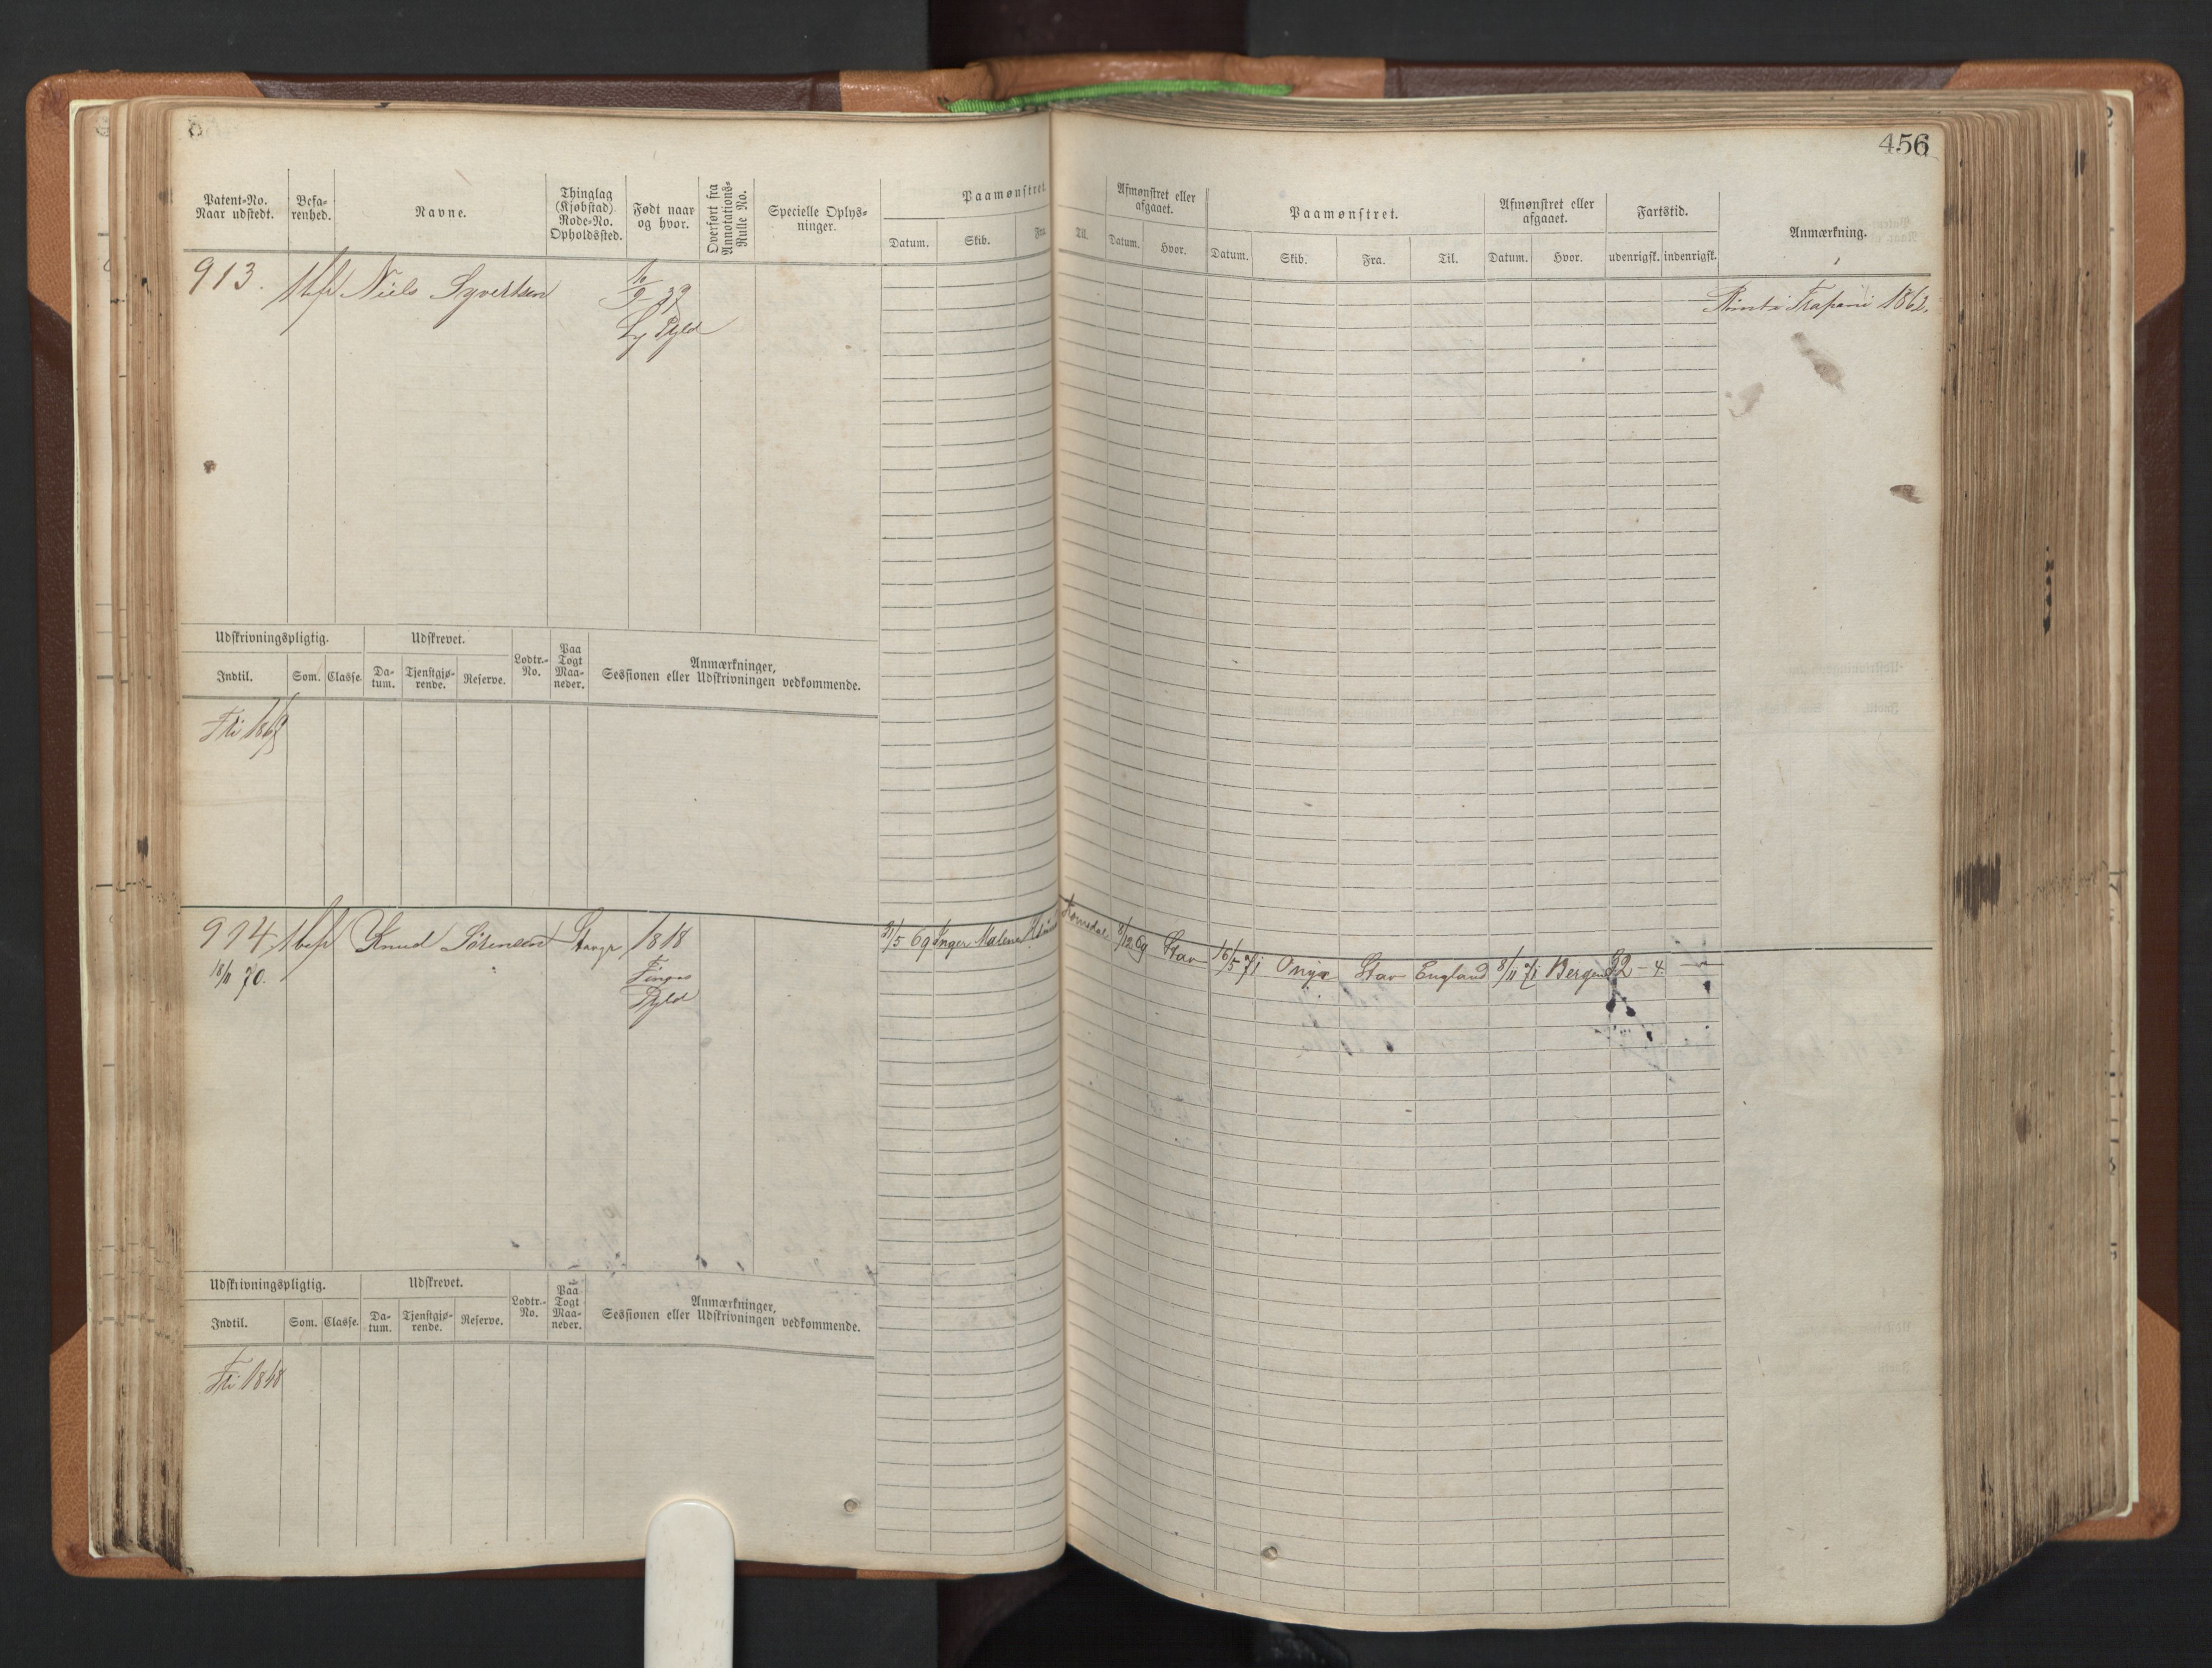 456
Patent-No.
Naar udstedt.
Befa-
renhed.
Navne.
Thinglag
(Kjøbstad)
Rode-No.
Opholdssted.
Født naar
og hvor.
Overført fra
Annotations-
Rulle No.
Specielle Oplys-
ninger.
Paamønstret.
Datum. Skib. Fra. Til.
Afmønstret eller
afgaaet.
Datum. Hvor.
Paamønstret.
Datum. Skib. Fra. Til.
Afmønstret eller
afgaaet.
Datum. Hvor.
Fartstid.
udenrigsk. indenrigsk.
Anmærkning.
913. Niels Syvertsen
Trapani 1862.
Udskrivningspligtig. Udskrevet.
Indtil. Som. Classe.
Da-
tum.
Tjenstgjø-
rende.
Reserve.
Lodtr.-
No.
Paa
Togt
Maa-
neder.
Anmærkninger,
Sessionen eller Udskrivningen vedkommende.
Fri
914 1bef Knud Sörensen 1818 31/5 69 Inger Malena Romsdal 9/12 69 Stav 16/5 71 Onyx Stav England 8/11 71 Bergen 32-4
18/11 70.
Udskrivningspligtig. Udskrevet.
Indtil. Som. Classe.
Da-
tum.
Tjenstgjø-
rende.
Reserve.
Lodtr.-
No.
Paa
Togt
Maa-
neder.
Anmærkninger,
Sessionen eller Udskrivningen vedkommende.
Fri 1848